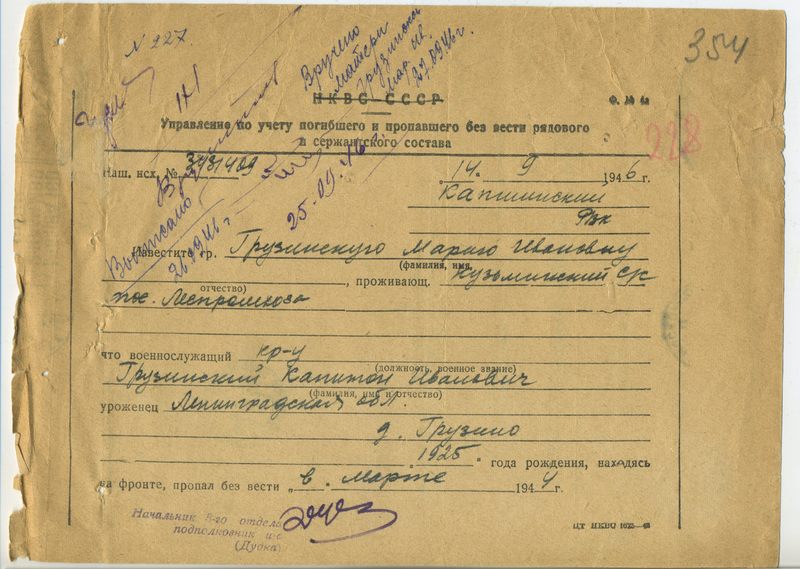 N 227.
354
Вручено
матери
Грузинской
Мар. Ив.
27.09.46 г.
НКВС СССР
Ф. № 4а
Управление по учету погибшего и пропавшего без вести рядового
и сержантского состава
228
Наш. исх. №
„14. 9 1946 г.
Капшинский
РВК
25.09.46 г.
Выписано
26.09.46 г.
Известите гр. Грузинскую Марию Ивановну
(фамилия, имя,
отчество) , проживающ. Кузьминский с/с
пос. Леспромхоза
что военнослужащий кр-ц
(должность, военное звание)
Грузинский Капитон Иванович
(фамилия, имя и отчество)
уроженец Ленинградская обл.
д. Грузино
1925 года рождения, находясь
на фронте, пропал без вести „в. Марте 1944 г.
Начальник -го отдела
подполковник и/с
(Дудка)
ЦТ НКВС